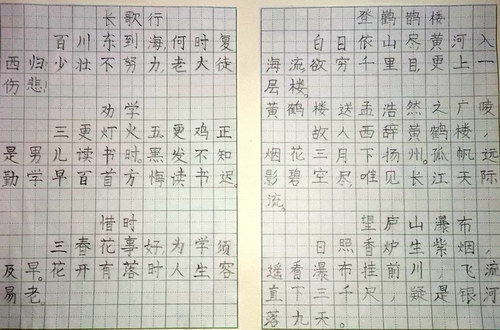 长歌行
百川东到海,何时复
西归!少壮不努力,老大徒
伤悲!
劝学
三更灯火五.更鸡正
是男儿读书时。黑发不知
勤学早百首方悔读书迟。
惜时
三春花事好,为学须
及早。花开有落时,人生容
易老。
登鹳鹊楼
白日依山尽,黄河入
海流,欲穷千里目,更上一
层楼。
黄鹤楼送孟浩然之广陵,
故人西辞黄鹤楼,
烟花三月下扬州。孤帆远
影碧空尽,唯见长江天际
流。
望庐山瀑布
日照香炉生紫烟,
遥香瀑布挂前川,飞流
直下三千尺,疑是银河
落九天。